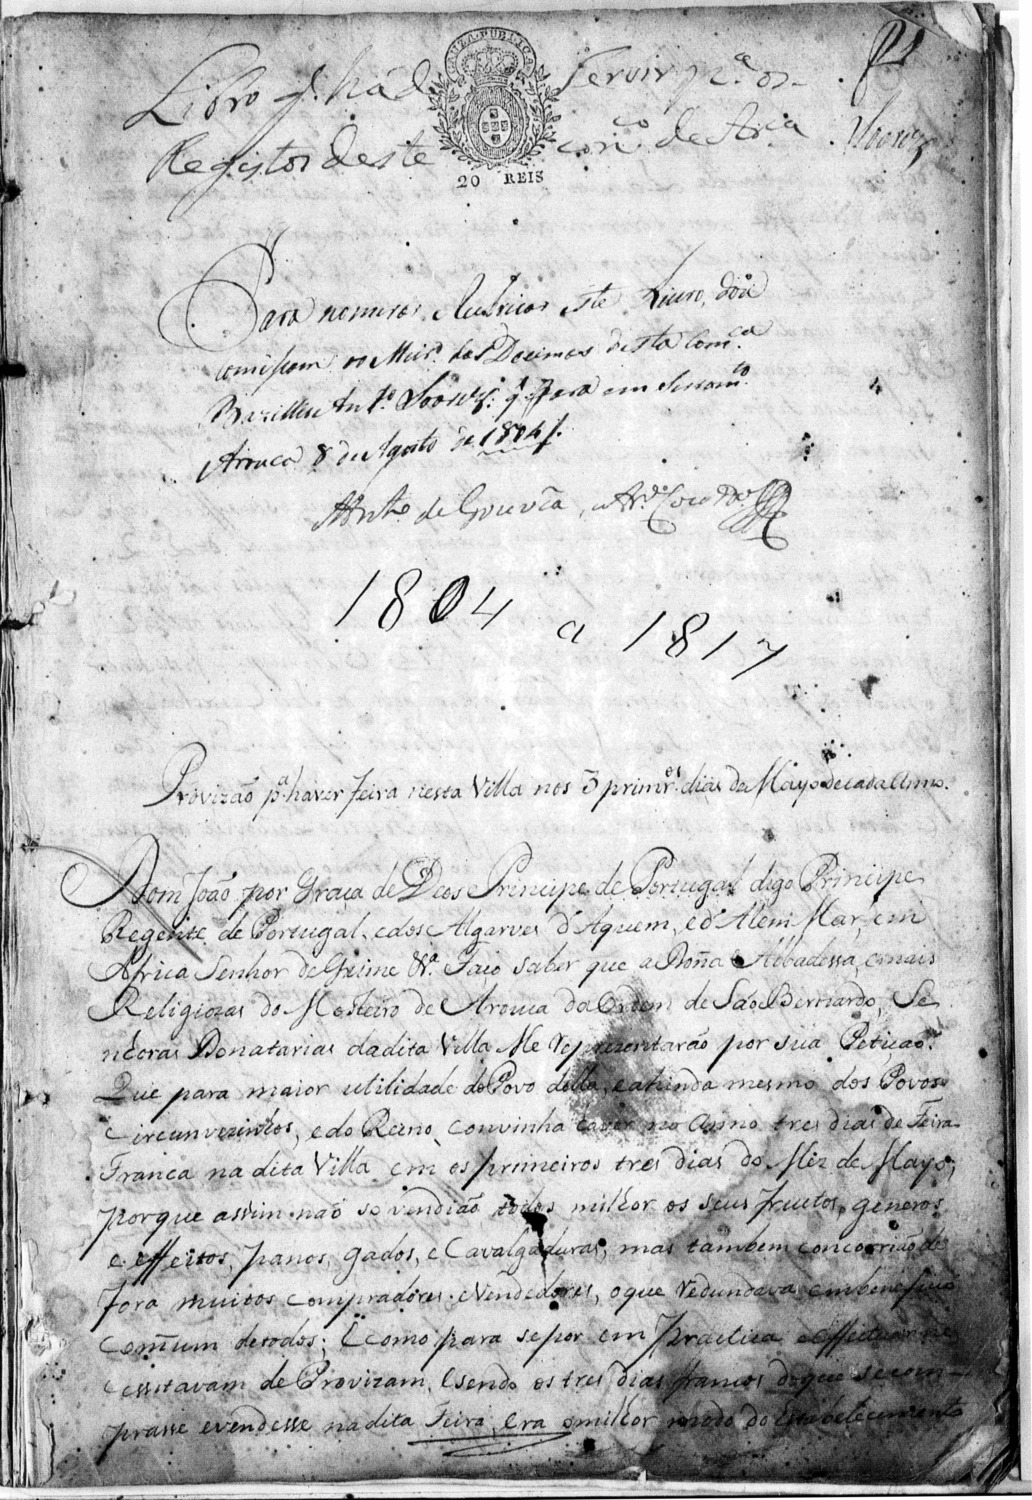 CAUZA PUBLICA
20 REIS
Libro q. ha de servir p.ª os
Registos deste con.co de Ar.ca
Para numerar Rubricar este Livro, dou
comissam ao Meir.º das Decimas desta Com.ca
An.to q. fara em Serram.to
Arouca 8 de Agosto de 1804
de Gouvêa
1804 a 1817
Provizão p.ª haver Feira nesta Villa nos 3 primr.os dias de Mayo de cada Anno.
Dom João por Graça de Deos Principe de Portugal digo Principe
Regente de Portugal, e dos Algarves d'Aquem, e d'Alem Mar, em
Africa Senhor de Guine &.ª Faço saber que a Dona Abbadessa, e mais
Religiozas do Mosteiro de Arouca da Ordem de São Bernardo, Se
nhoras Donatarias da dita Villa Me Reprezentarão por sua Petição.
Que para maior utilidade do Povo della, e ahinda mesmo dos Povos
circunvezinhos, e do Reino, convinha haver no Anno tres dias de Feira
Franca na dita Villa em os primeiros tres dias do Mez de Mayo;
porque assim não so vendião todos milhor os seus fructos, generos
e effeitos, panos, gados, e Cavalgaduras, mas tambem concorrião de
fora muitos compradores e Vendedores, o que redundava em beneficio
comum de todos; E como para se por em practica e effeituar ne
cessitavam de Provizam, E sendo os tres dias francos do que se com-
prasse e vendesse na dita Feira, era o milhor modo do Estabelecimento